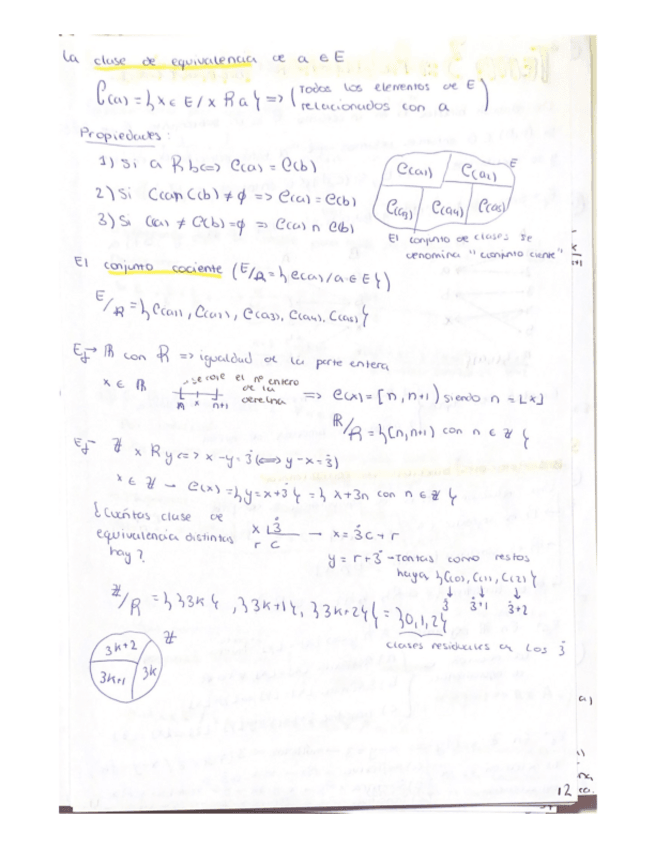 La clase de equivalencia de a ∈ E
C(a) = { x ∈ E / x R a } => ( Todos los elementos de E
relacionados con a )
Propiedades:
1) Si a R b <=> C(a) = C(b)
2) Si C(a) ∩ C(b) ≠ ∅ => C(a) = C(b)
3) Si C(a) ≠ C(b) = ∅ => C(a) ∩ C(b)
E
C(a1) C(a2)
C(a3) C(a4) C(a5)
El conjunto de clases se
denomina "conjunto ciente"
El conjunto cociente (E/R = { C(a) / a ∈ E })
E/R = { C(a1), C(a2), C(a3), C(a4), C(a5) }
Ej → R con R => igualdad de la parte entera
x ∈ R
se coge el nº entero
de la
derecha
n x n+1
=> C(x) = [n, n+1) siendo n = ⌊x⌋
R/R = { [n, n+1) con n ∈ Z }
Ej - Z x R y <=> x - y = 3̇ (<=> y - x = 3̇)
x ∈ Z → C(x) = { y = x + 3̇ } = { x + 3n con n ∈ Z }
¿Cuántas clase de
equivalencia distintas
hay?
x ⌊3
r c
→ x = 3̇c + r
y = r + 3̇ → tantas como restos
haya { C(0), C(1), C(2) }
3̇ 3̇+1 3̇+2
Z/R = { {3k}, {3k+1}, {3k+2} } = {0, 1, 2}
clases residuales de los 3̇
Z
3k+2
3k+1 3k
12